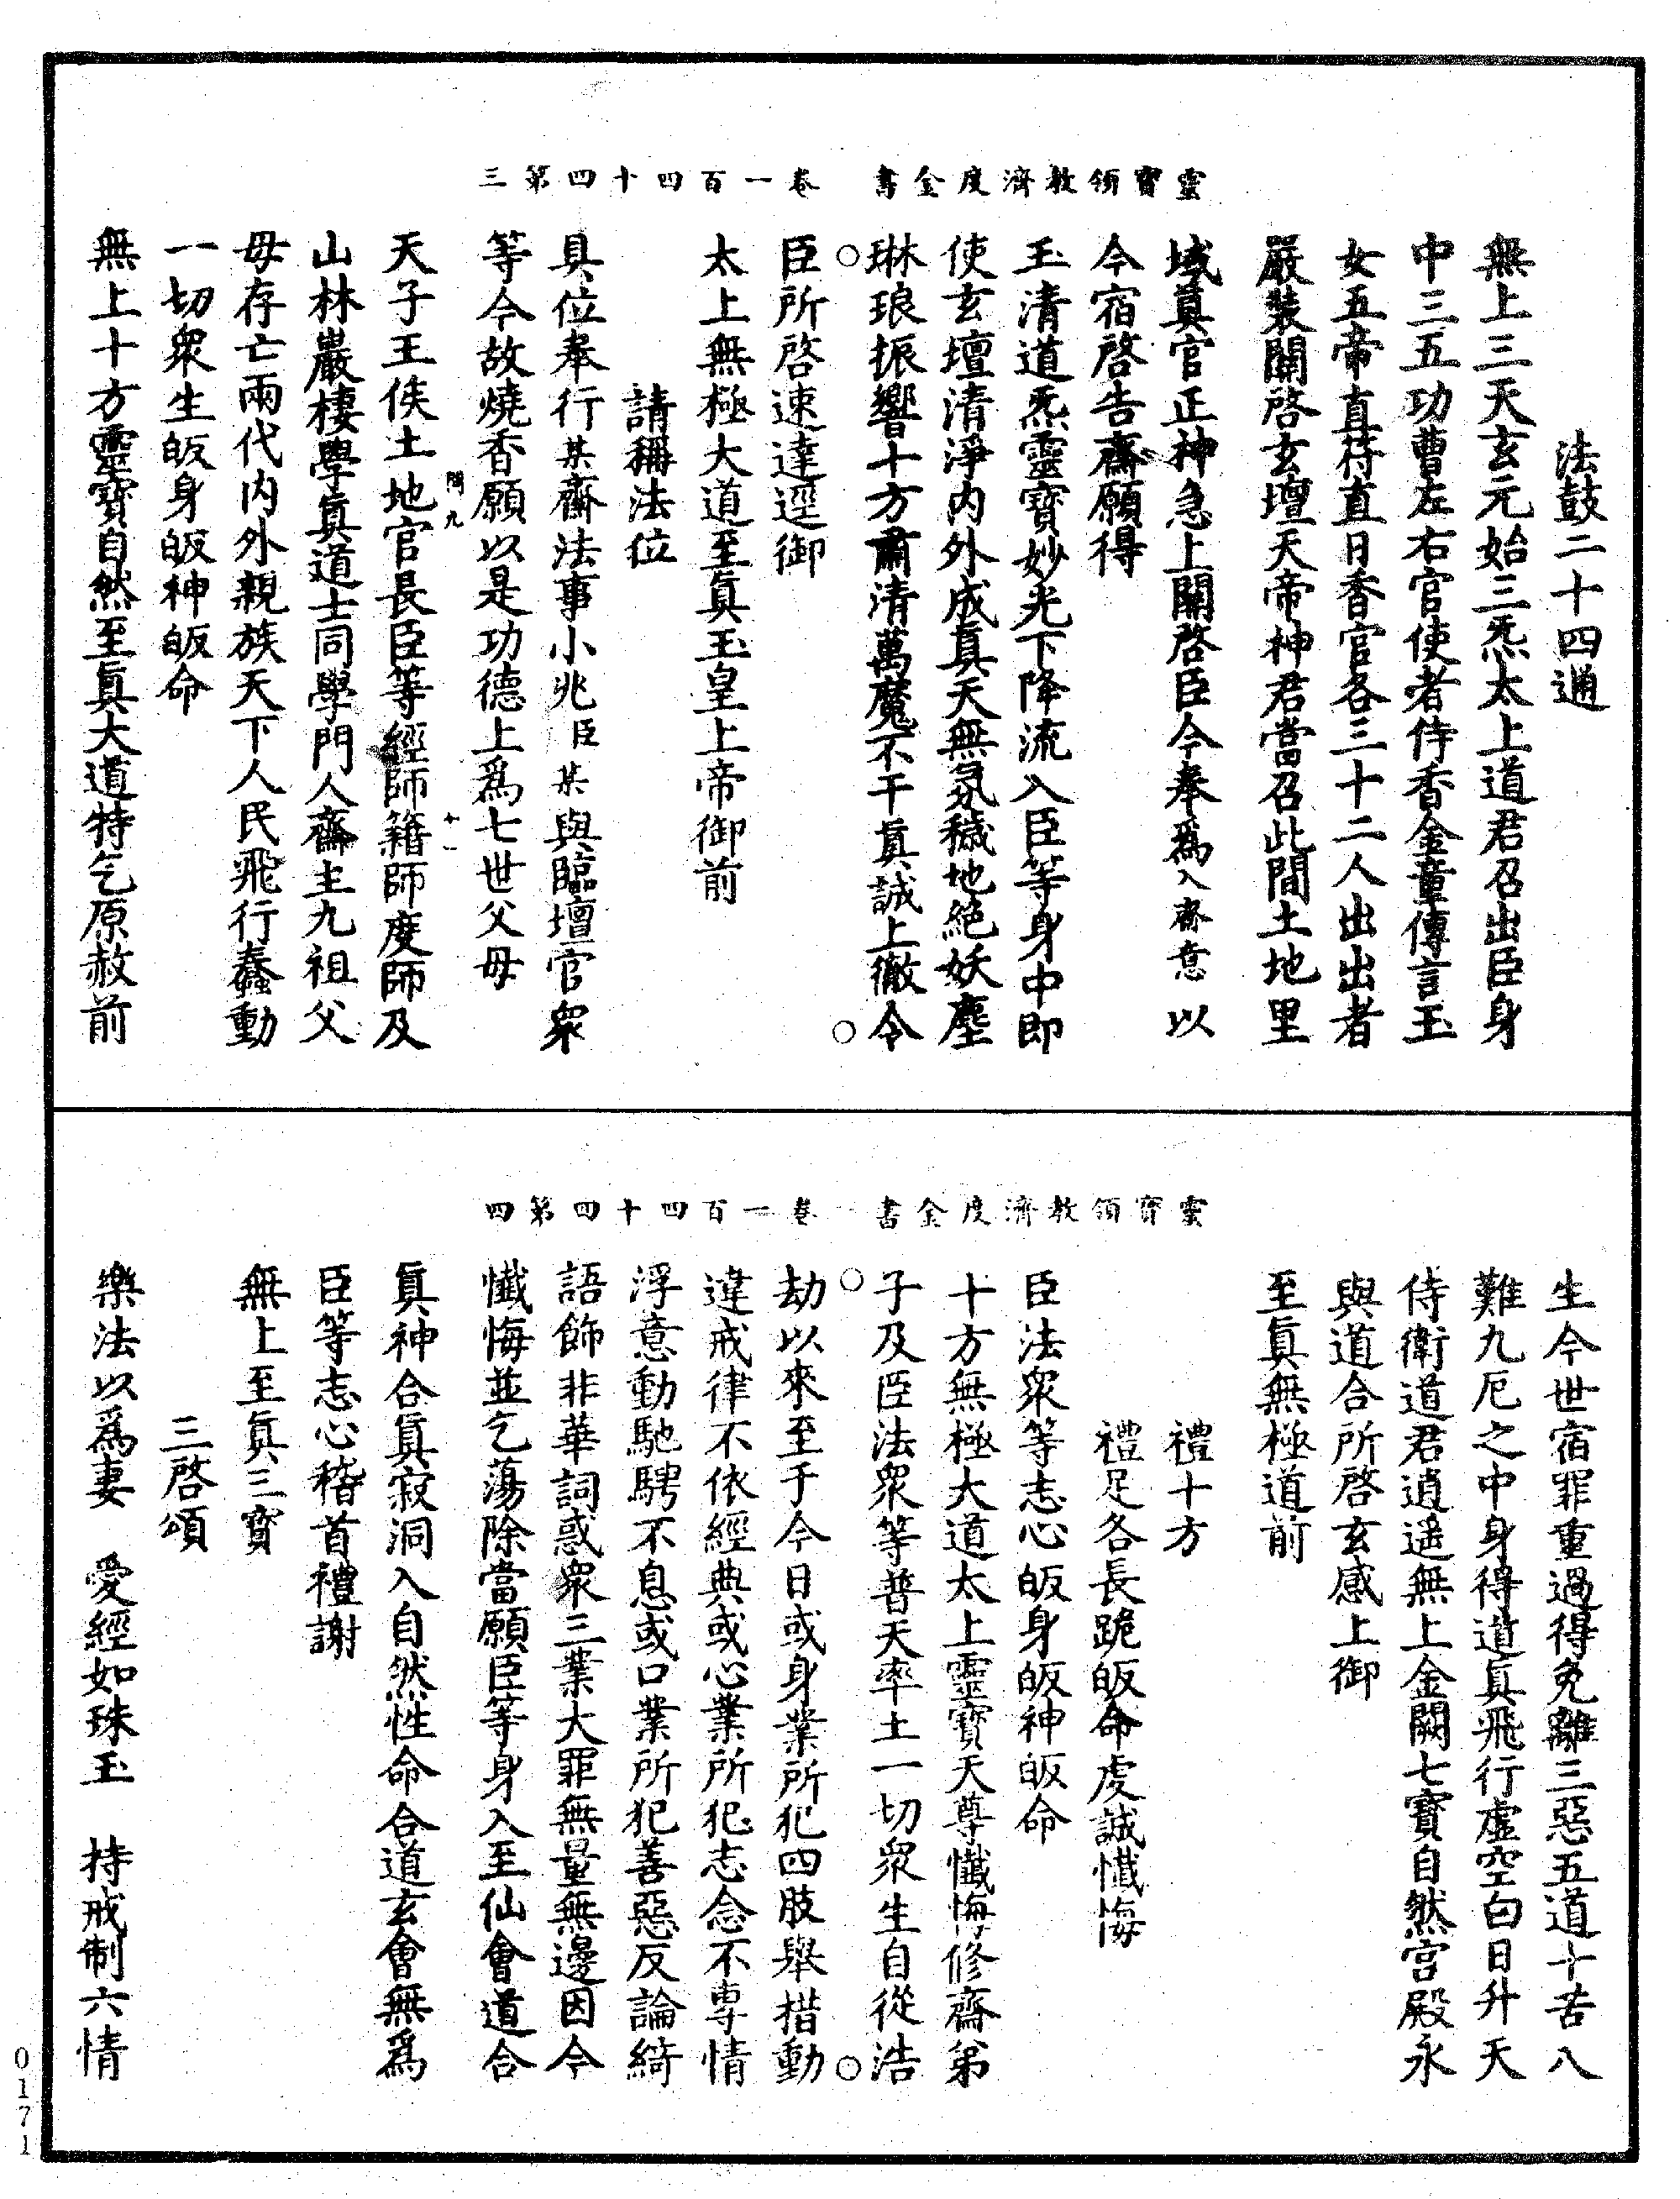 靈寶領教濟度金書 卷一百四十四第三
法鼓二十四通
無上三天玄元始三炁太上道君召出臣身
中三五功曹左右官使者侍香金童傳言玉
女五帝直符直日香官各三十二人出出者
嚴裝關啓玄壇天帝神君當召此間土地里
域眞官正神急上關啓臣今奉爲入齋意以
今宿啓告齋願得
玉清道炁靈寶妙光下降流入臣等身中即
使玄壇清淨内外成眞天無氛穢地絶妖塵
琳琅振響十方肅清萬魔不干眞誠上徹令
臣所啓速達逕御
太上無極大道至眞玉皇上帝御前
請稱法位
具位奉行某齋法事小兆臣某與臨壇官衆
等今故燒香願以是功德上爲七世父母
天子王侯土地官長臣等經師籍師度師及
山林巖棲學眞道士同學門人齋主九祖父
母存亡兩代内外親族天下人民飛行蠢動
一切衆生皈身皈神皈命
無上十方靈寶自然至眞大道特乞原赦前
靈寶領教濟度金書 卷一百四十四第四
生今世宿罪重過得免離三惡五道十苦八
難九厄之中身得道眞飛行虛空白日升天
侍衛道君逍遥無上金闕七寶自然宫殿永
與道合所啓玄感上御
至眞無極道前
禮十方
禮足各長跪皈命虔誠懺悔
臣法衆等志心皈身皈神皈命
十方無極大道太上靈寶天尊懺悔修齋弟
子及臣法衆等普天率土一切衆生自從浩
劫以來至于今日或身業所犯四肢舉措動
違戒律不依經典或心業所犯志念不專情
浮意動馳騁不息或口業所犯善惡反論綺
語飾非華詞惑衆三業大罪無量無邊因今
懺悔並乞蕩除當願臣等身入至仙會道合
眞神合眞寂洞入自然性命合道玄會無爲
臣等志心稽首禮謝
無上至眞三寶
三啓頌
樂法以爲妻 愛經如珠玉 持戒制六情
0171